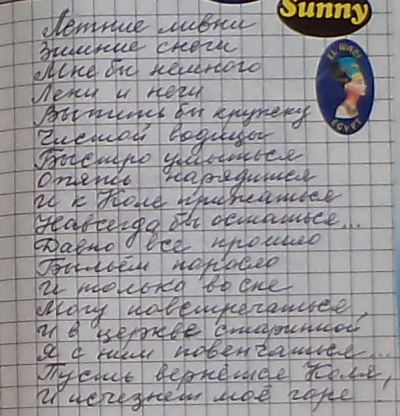 Sunny
EL WADI
EGYPT
Летние ливни
Зимние снеги
Мне бы немного
Лени и неги
Выпить бы кружку
Чистой водицы
Быстро умыться
Опять нарядится
И к Коле прижаться
Навсегда бы остаться...
Давно все прошло
Быльём поросло
И только во сне
Могу повстречаться,
И в церкве старинной
Я с ним повенчаться...
Пусть вернётся Коля,
И исчезнет моё горе!